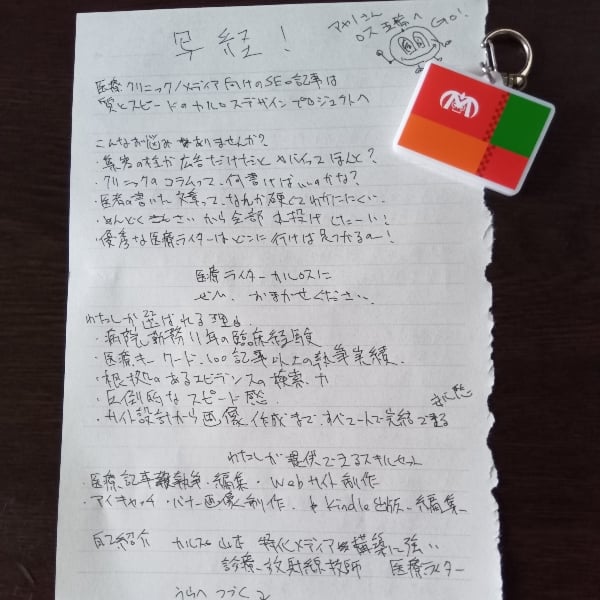 写経!
マサノさん
ロス五輪へ GO!
医療クリニック/メディア向けのSEO記事は
質とスピードのカルロスデザインプロジェクトへ
こんなお悩みありませんか?
・集客の柱が広告だけだとヤバいってほんと?
・クリニックのコラムって、何書けばいいのかな?
・医者の書いた文章って、なんか硬くてわかりにくい。
・めんどくさいから全部丸投げしたーい!
・優秀な医療ライターはどこに行けば見つかるのー!
医療ライターカルロスに
ぜひ、おまかせください。
わたしが選ばれる理由
・病院勤務11年の臨床経験
・医療キーワード、100記事以上の執筆実績
・根拠のあるエビデンスの検索力
・圧倒的なスピード感
・サイト設計から画像作成まで、すべて一人で完結できる
わたしが提供できるスキルセット
・医療記事執筆・編集・Webサイト制作
・アイキャッチ・バナー画像制作・Kindle出版、編集
自己紹介 カルロス山本 特化メディア構築に強い
診療放射線技師 医療ライター
うらへつづく